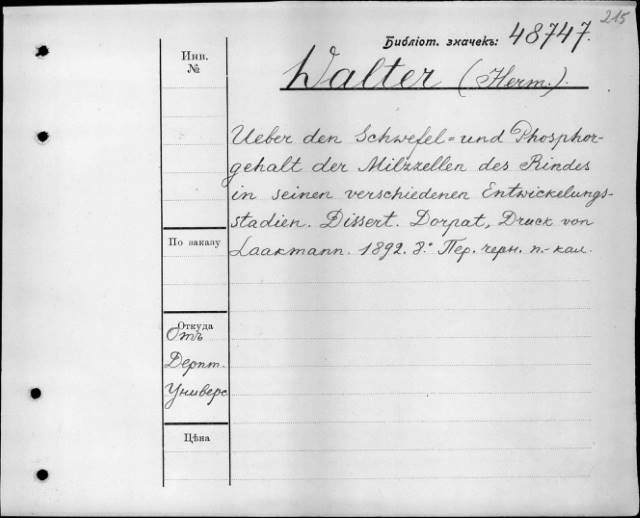 215
Библіот. значекъ: 48747.
Инв.
№
Walter (Herm.).
Ueber den Schwefel= und Phosphor-
gehalt der Milzzellen des Rindes
in seinen verschiedenen Entwickelungs-
stadien. Dissert. Dorpat, Druck von
Laakmann. 1892. 8.° Пер. черн. п.-кал.
По заказу
Откуда
Отъ
Дерпт.
Универс
Цѣна